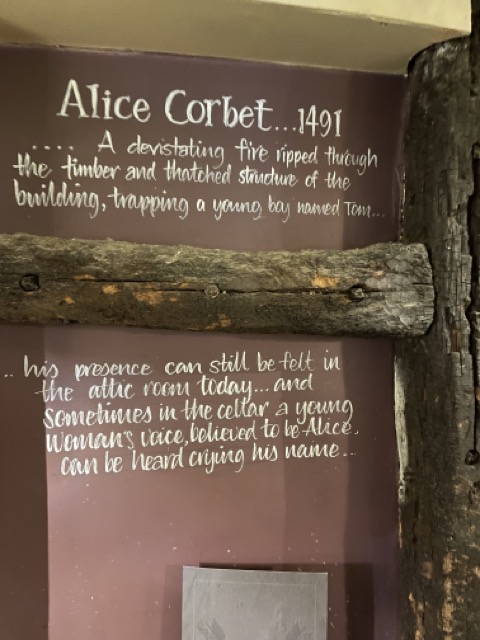 Alice Corbet...1491
.... A devistating fire ripped through
the timber and thatched structure of the
building, trapping a young boy named Tom...
.. his presence can still be felt in
the attic room today... and
sometimes in the cellar a young
woman's voice, believed to be Alice,
can be heard crying his name...